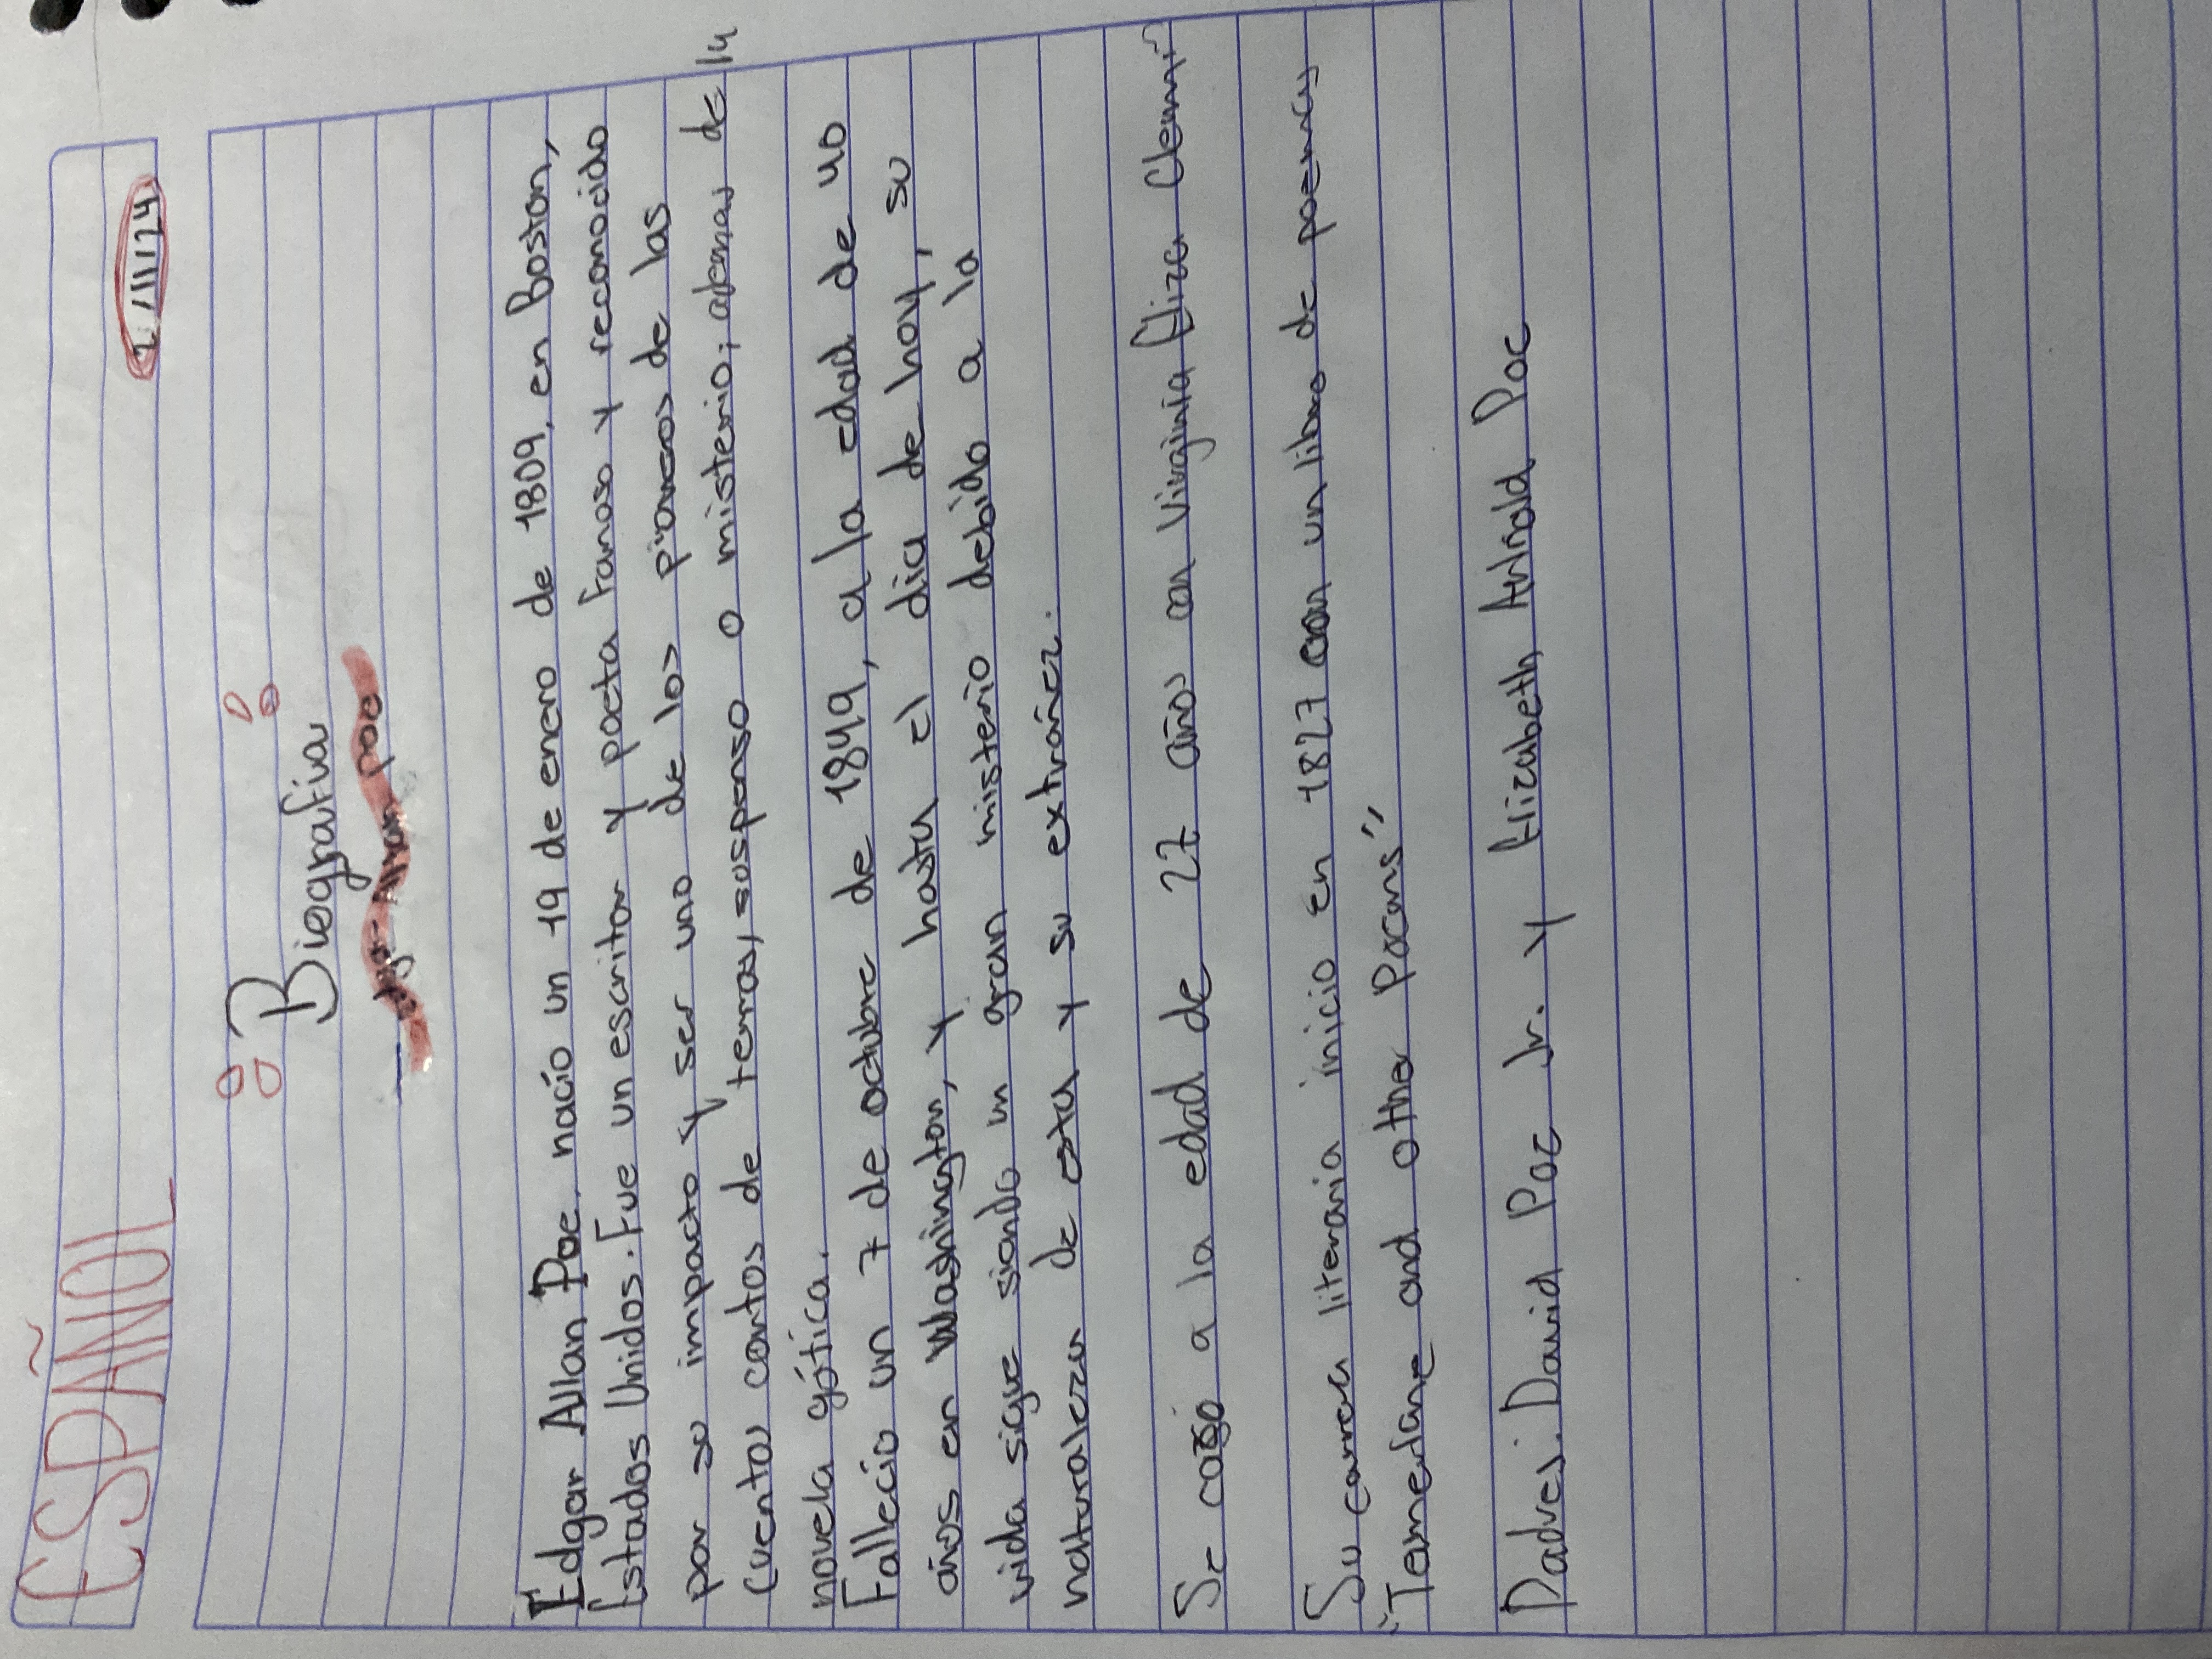 ESPAÑOL
2/11/24
Biografia
Edgar Allan Poe
Edgar Allan Poe, nacío un 19 de enero de 1809, en Boston,
Estados Unidos. Fue un escritor y poeta framoso y reconocido
por su impacto y ser uno de los pioneros de las
cuentos cortos de terror, suspenso o misterio; ademas de la
novela gótica.
Fallecío un 7 de octubre de 1849, a la edad de 40
años en Washington, y hasta el dia de hoy, su
vida sigue siendo un gran misterio debido a la
naturaleza de esta y su extráñez.
Se casó a la edad de 27 años con Virginia Eliza Clemm
Su carrea literaria inicio en 1827 con un libro de poemas
"Tamerlane and other Poems"
Padres: David Poe Jr. y Elizabeth Arnold Poe